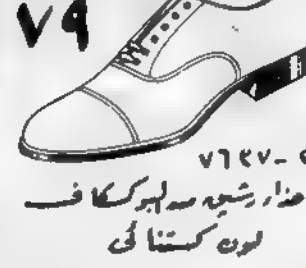 ٧٩
حذاء رشيق من البوكسكاف
لون كستنائى